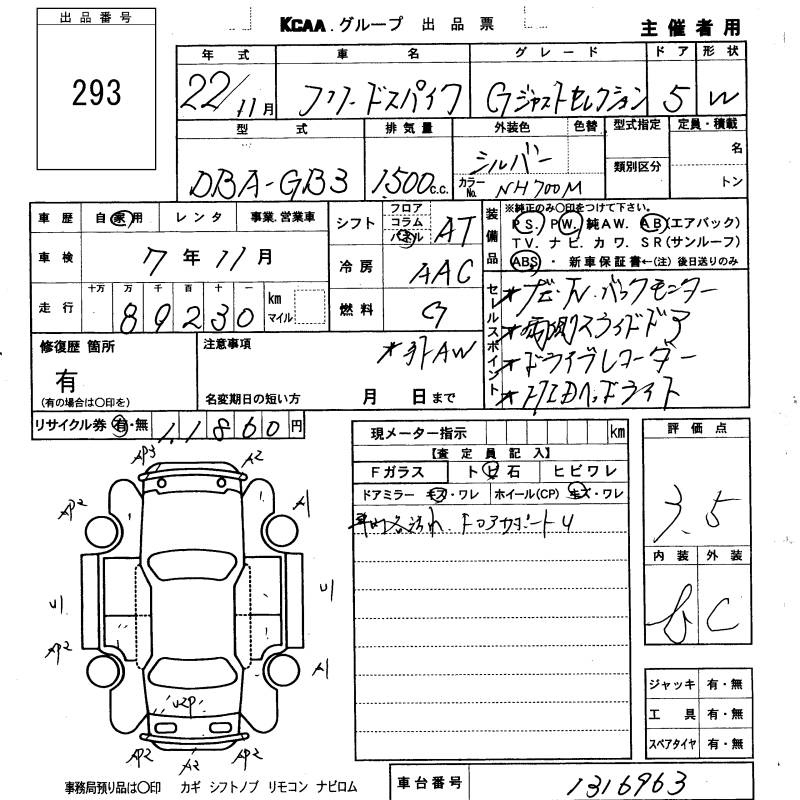 出品番号
293
KCAA.グループ 出品票
主催者用
年式 車名 グレード ドア 形状
22/11月 フリードスパイク Gジャストセレクション 5 W
型式 排気量 外装色 色替 型式指定 定員・積載
DBA-GB3 1,500c.c. シルバー 名
カラーNo. NH700M 類別区分 トン
車歴 自家用 レンタ 事業.営業車
シフト フロア コラム パネル AT
装備品 ※純正のみ〇印をつけて下さい。
PS. PW. 純AW. AB(エアバック)
TV. ナビ. カワ. SR(サンルーフ)
ABS. 新車保証書←(注)後日送りのみ
車検 7年11月
冷房 AAC
走行 十万 万 千 百 十 一 km マイル
89230
燃料 G
セールスポイント
★ナビ.TV.バックモニター
★両側スライドドア
★ドライブレコーダー
★HIDヘッドライト
修復歴 箇所
有
(有の場合は〇印を)
注意事項
★社外AW
名変期日の短い方 月 日まで
リサイクル券 有・無 11860円
現メーター指示 km
【査定員記入】
Fガラス トビ石 ヒビワレ
ドアミラー キズ・ワレ ホイール(CP) キズ・ワレ
車内各汚れ.ドアサポートU
評価点
3.5
内装 外装
b C
AP3 A2
AP2 A1
U1 U1
AP2 A1
U2P
AP2 A2 AP2
ジャッキ 有・無
工具 有・無
スペアタイヤ 有・無
事務局預り品は〇印 カギ シフトノブ リモコン ナビロム
車台番号 1316963